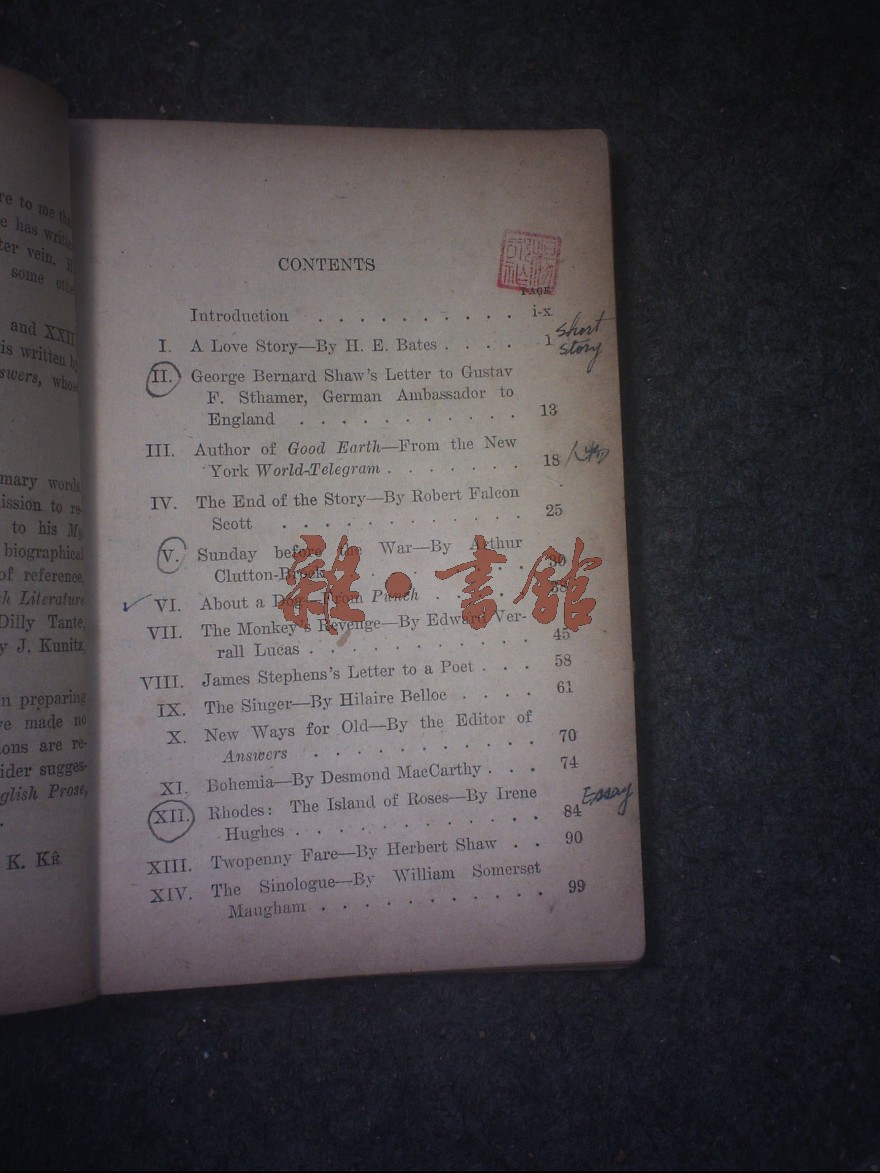 re to me
e has
ter vein.
some
and XXII
is written
swers,
mary words
ission to re-
to his My
biographical
of reference.
Literature
Dilly Tante,
y J. Kunitz
n preparing
ve made no
ions are re-
ider sugges-
glish Prose,
K. KÊ
CONTENTS
PAGE
Introduction . . . . . . . . . . i-x
I. A Love Story—By H. E. Bates . . . . 1 short
story
II. George Bernard Shaw's Letter to Gustav
F. Sthamer, German Ambassador to
England . . . . . . . . . . . 13
III. Author of Good Earth—From the New
York World-Telegram . . . . . . . 18 人物
IV. The End of the Story—By Robert Falcon
Scott . . . . . . . . . . . . 25
V. Sunday before the War—By Arthur
Clutton-Brock . . . . . . . . 30
VI. About a Dog—From Punch . . . . . 38
VII. The Monkey's Revenge—By Edward Ver-
rall Lucas . . . . . . . . . . . 45
VIII. James Stephens's Letter to a Poet . . . 58
IX. The Singer—By Hilaire Belloc . . . . 61
X. New Ways for Old—By the Editor of
Answers . . . . . . . . . . . 70
XI. Bohemia—By Desmond MacCarthy . . . 74
XII. Rhodes: The Island of Roses—By Irene Essay
Hughes . . . . . . . . . . . . 84
XIII. Twopenny Fare—By Herbert Shaw . . 90
XIV. The Sinologue—By William Somerset
Maugham . . . . . . . . . . . 99
雜·書館